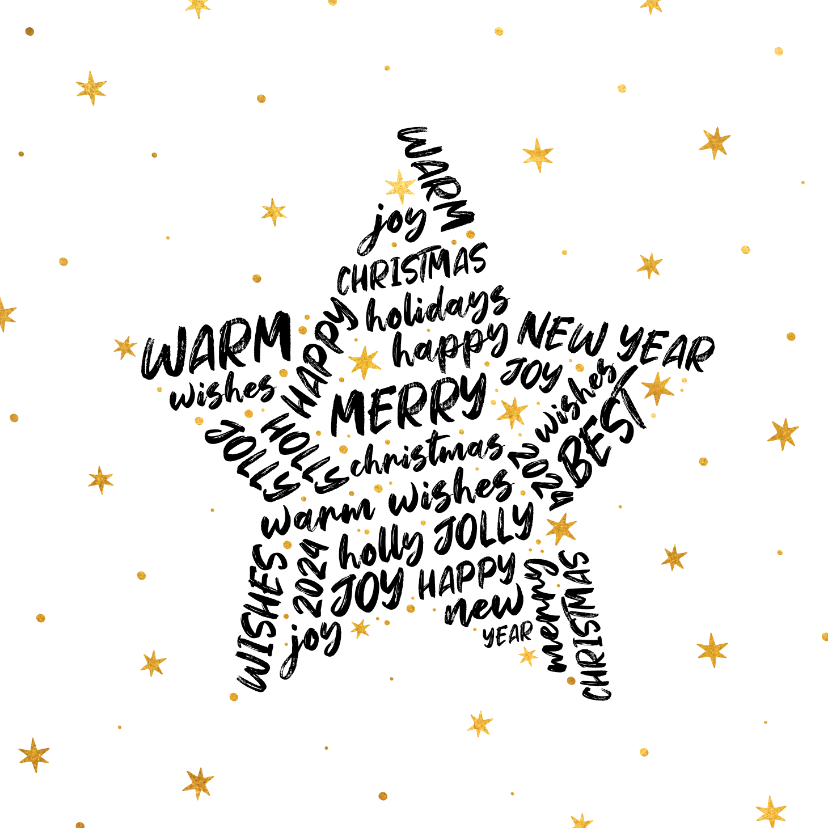 WARM
joy
CHRISTMAS
holidays
happy
HAPPY
WARM
wishes
NEW YEAR
JOY
wishes
BEST
MERRY
HOLLY
JOLLY
christmas
2024
warm wishes
holly JOLLY
JOY HAPPY
new
YEAR
WISHES
2024
joy
merry
CHRISTMAS